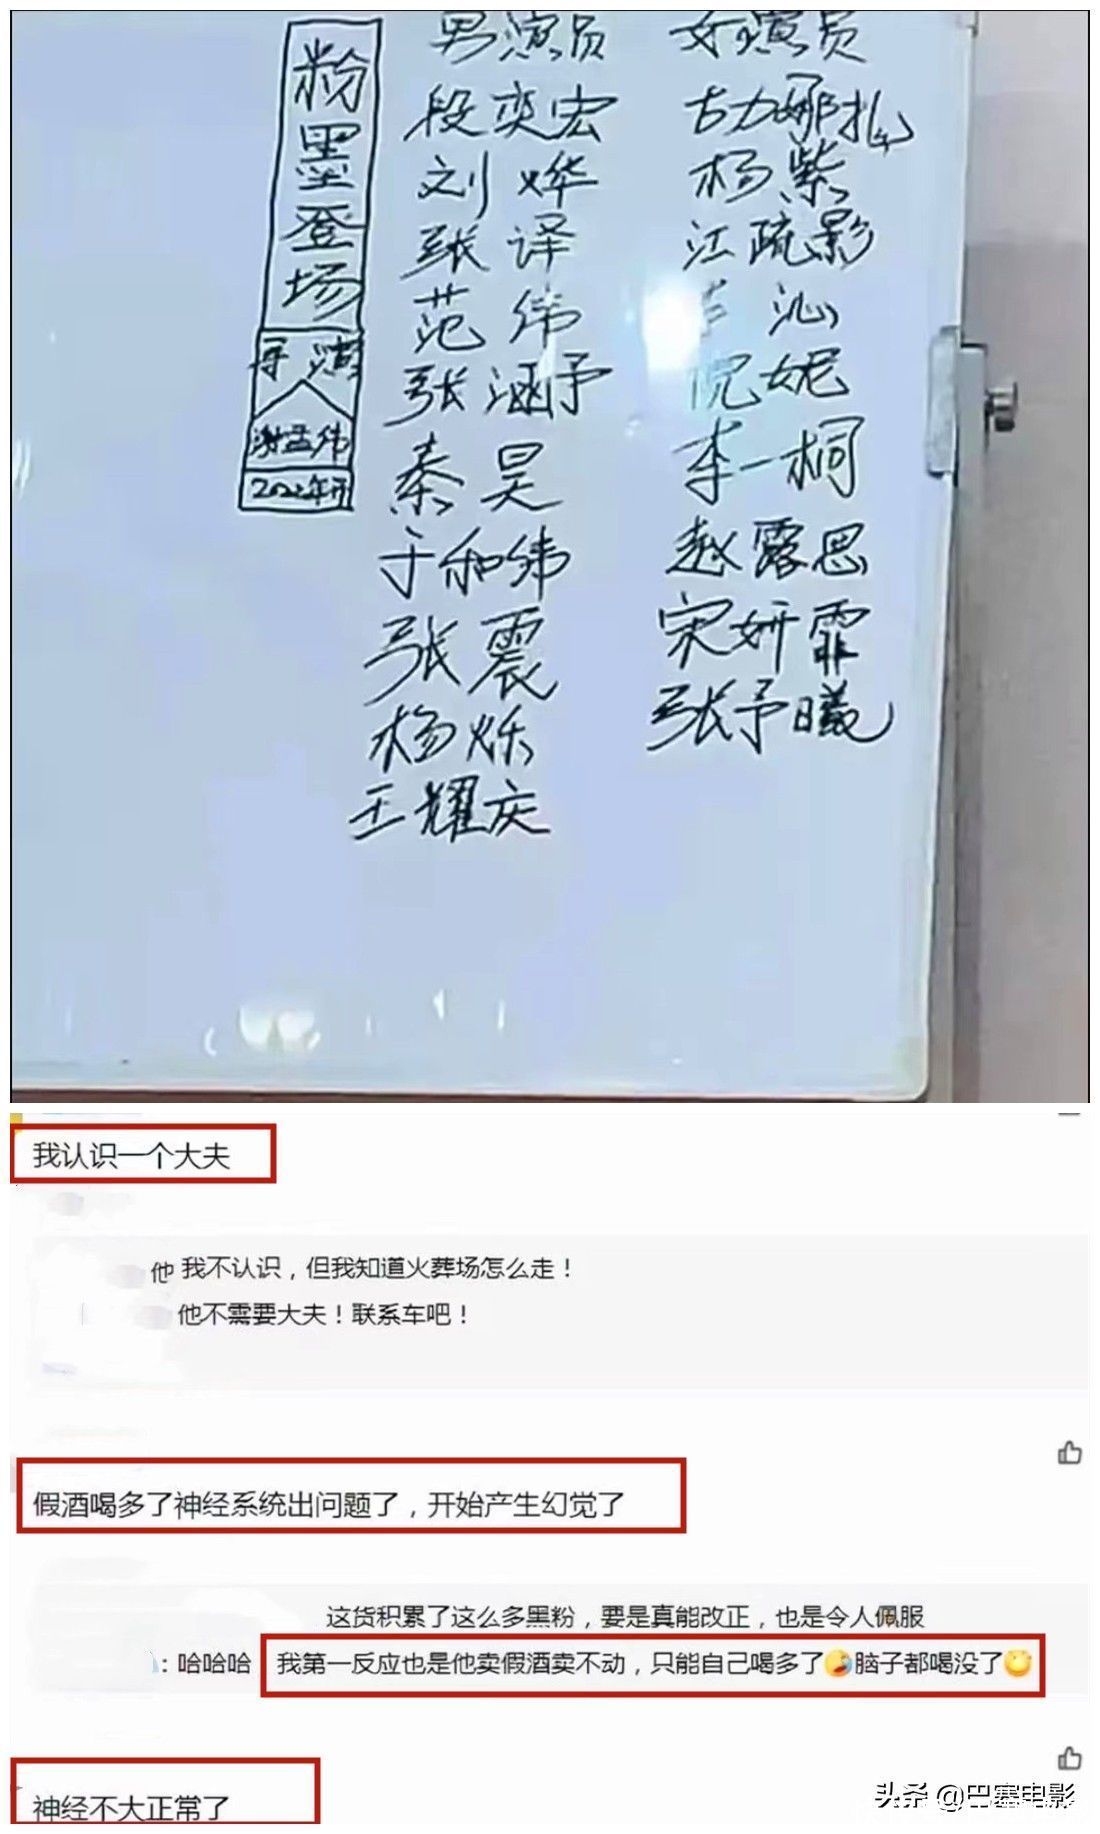 粉墨登场
导演
谢孟伟
2022年开
男演员
段奕宏
刘烨
张译
范伟
张涵予
秦昊
于和伟
张震
杨烁
王耀庆
女演员
古力娜扎
杨紫
江疏影
李沁
倪妮
李一桐
赵露思
宋妍霏
张予曦
我认识一个大夫
他 我不认识，但我知道火葬场怎么走！
他不需要大夫！联系车吧！
假酒喝多了神经系统出问题了，开始产生幻觉了
这货积累了这么多黑粉，要是真能改正，也是令人佩服
：哈哈哈 我第一反应也是他卖假酒卖不动，只能自己喝多了🤣脑子都喝没了😋
神经不大正常了
头条 @巴塞电影